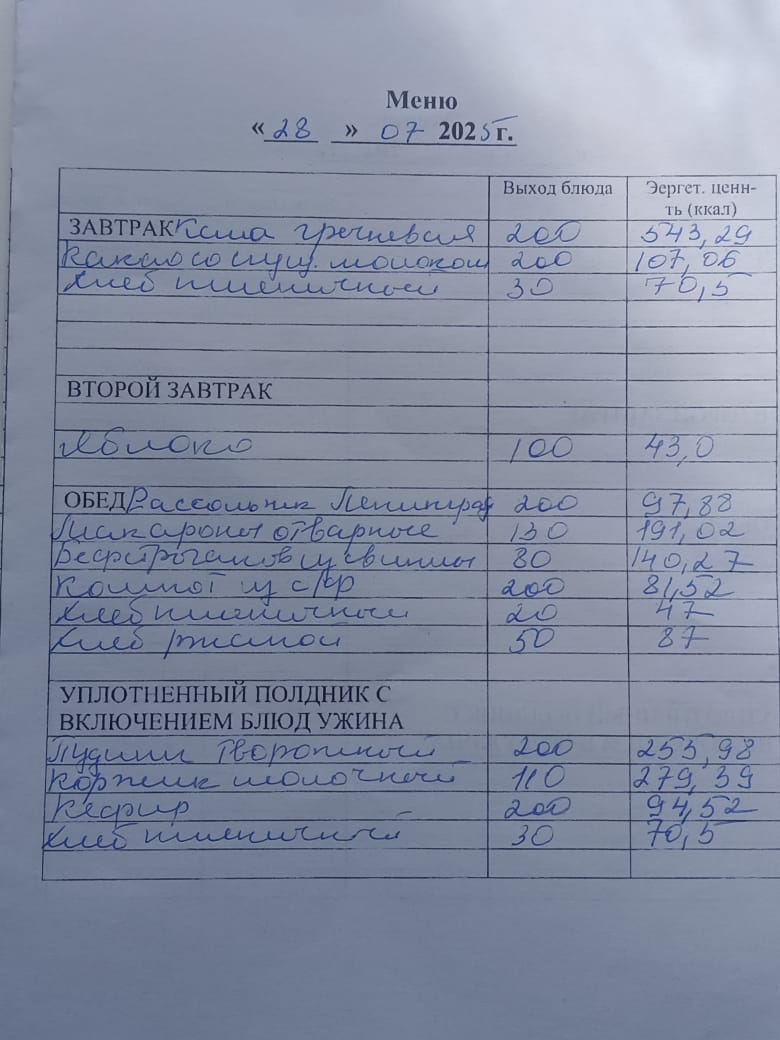 Меню
« 28 » 07 2025 г.
Выход блюда Эергет. ценн-
ть (ккал)
ЗАВТРАК Каша гречневая 200 543,29
Какао со сгущ. молоком 200 107,06
Хлеб пшеничный 30 70,5
ВТОРОЙ ЗАВТРАК
Яблоко 100 43,0
ОБЕД Рассольник Ленинград 200 97,88
Макароны отварные 130 191,02
Бефстроганов из свинины 80 140,27
Компот из с/фр 200 81,52
Хлеб пшеничный 20 47
Хлеб ржаной 50 87
УПЛОТНЕННЫЙ ПОЛДНИК С
ВКЛЮЧЕНИЕМ БЛЮД УЖИНА
Пудинг творожный 200 255,98
Коржик молочный 110 279,39
Кефир 200 94,52
Хлеб пшеничный 30 70,5